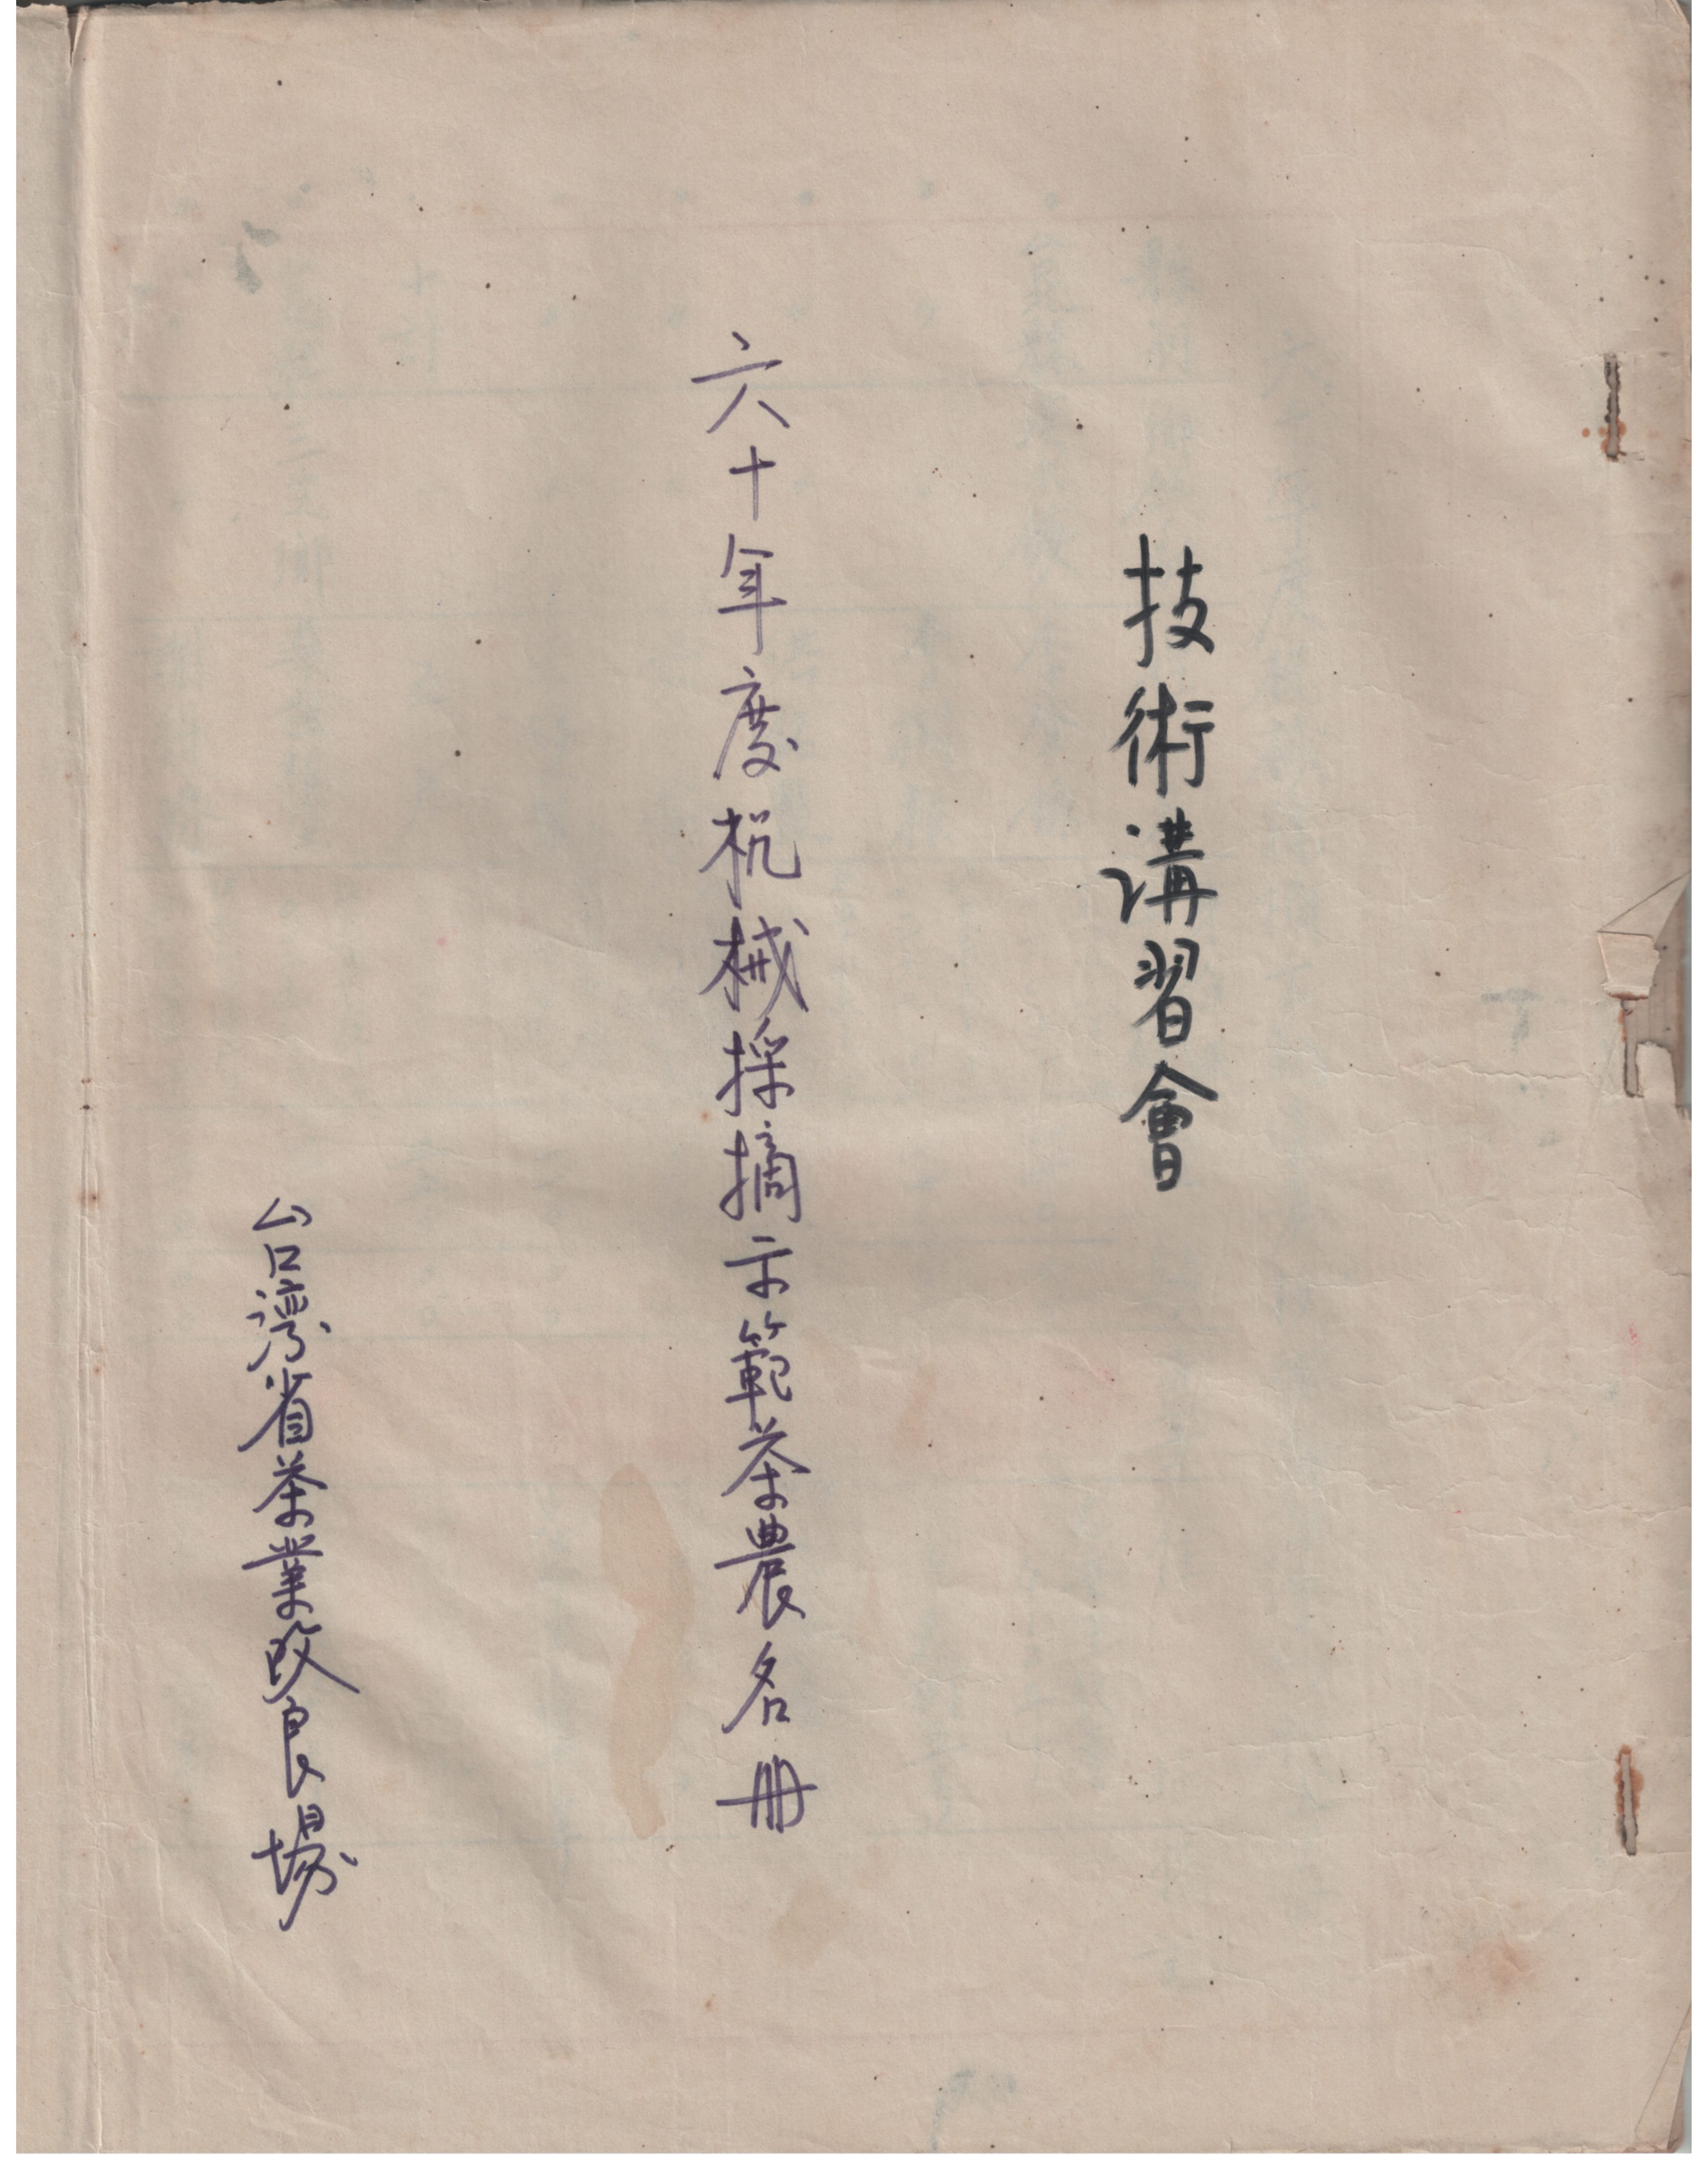 技術講習會
六十年度机械採摘示範茶農名册
台湾省茶業改良場